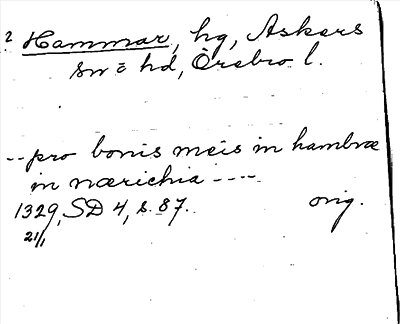 2 Hammar, hg, Askers
sn o hd, Örebro l.
-- pro bonis meis in hambræ
in nærichia ----
1329, SD 4, s. 87. orig.
21/1